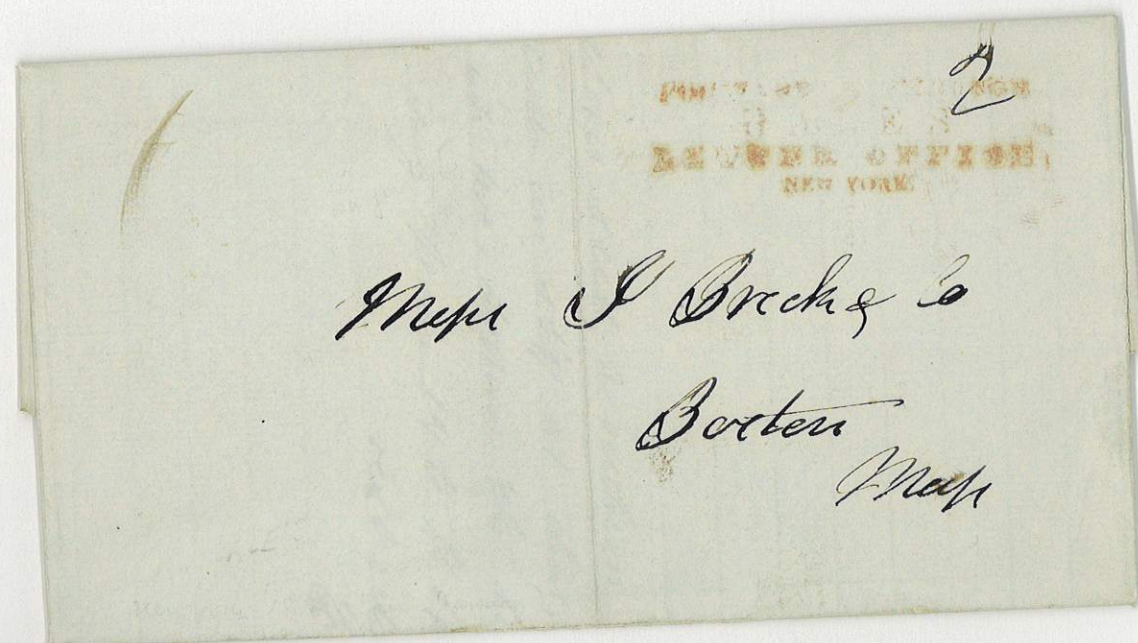 2
LETTER OFFICE
NEW YORK
Messrs J Breck & Co
Boston
Mass